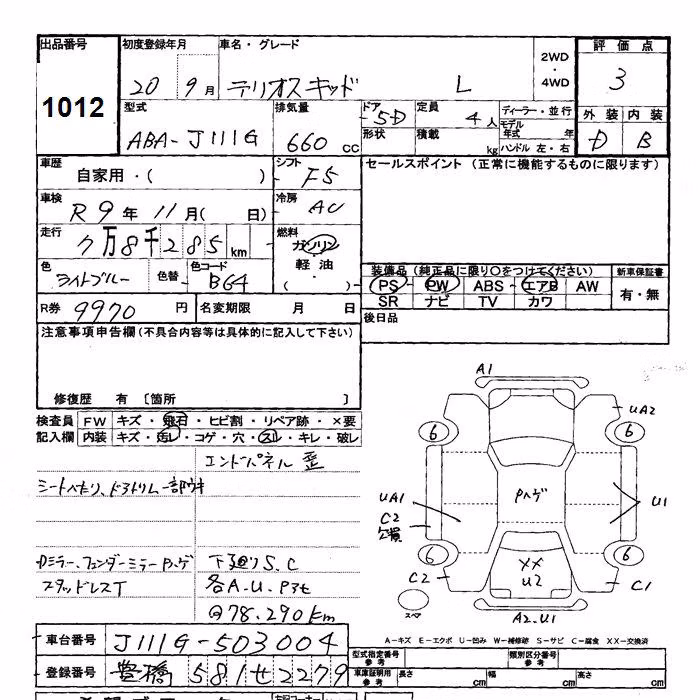 出品番号 初度登録年月 車名・グレード 2WD・4WD 評価点
1012 20 9月 テリオスキッド L 3
型式 排気量 ドア 形状 定員 積載 ディーラー・並行 外装 内装
ABA-J111G 660 cc 5D 4人 kg モデル年式 年 ハンドル 左・右 D B
車歴 自家用・( ) シフト F5 セールスポイント (正常に機能するものに限ります)
車検 R9年 11月( 日) 冷房 AC
走行 7万8千285 km 燃料 ガソリン 軽油 ・( )
色 ライトブルー 色替 色コード B64
装備品 (純正品に限り○をつけてください) 新車保証書
PS・PW・ABS・エアB AW 有・無
SR ナビ TV カワ
R券 9970 円 名変期限 月 日
後日品
注意事項申告欄(不具合内容等は具体的に記入して下さい)
修復歴 有 〔箇所 〕
検査員記入欄 FW キズ・飛石・ヒビ割・リペア跡・×要
内装 キズ・汚レ・コゲ・穴・スレ・キレ・破レ
エンドパネル歪
シートヘたり、ドアトリム一部ウキ
ミラー、フェンダーミラーPハゲ 下廻りS.C
スタッドレスT 各A.U.
@78.290km
A1
UA2
6 6
UA1 Pハゲ U1
C2
欠損
6 6
C2 XX U2 C1
スペア A2.U1
A-キズ E-エクボ U-凹み W-補修跡 S-サビ C-腐食 XX-交換済
車台番号 J111G-503004
型式指定番号 参考 類別区分番号 参考
登録番号 豊橋 581せ2279
車庫証明用 参考 長さ cm 幅 cm 高さ cm